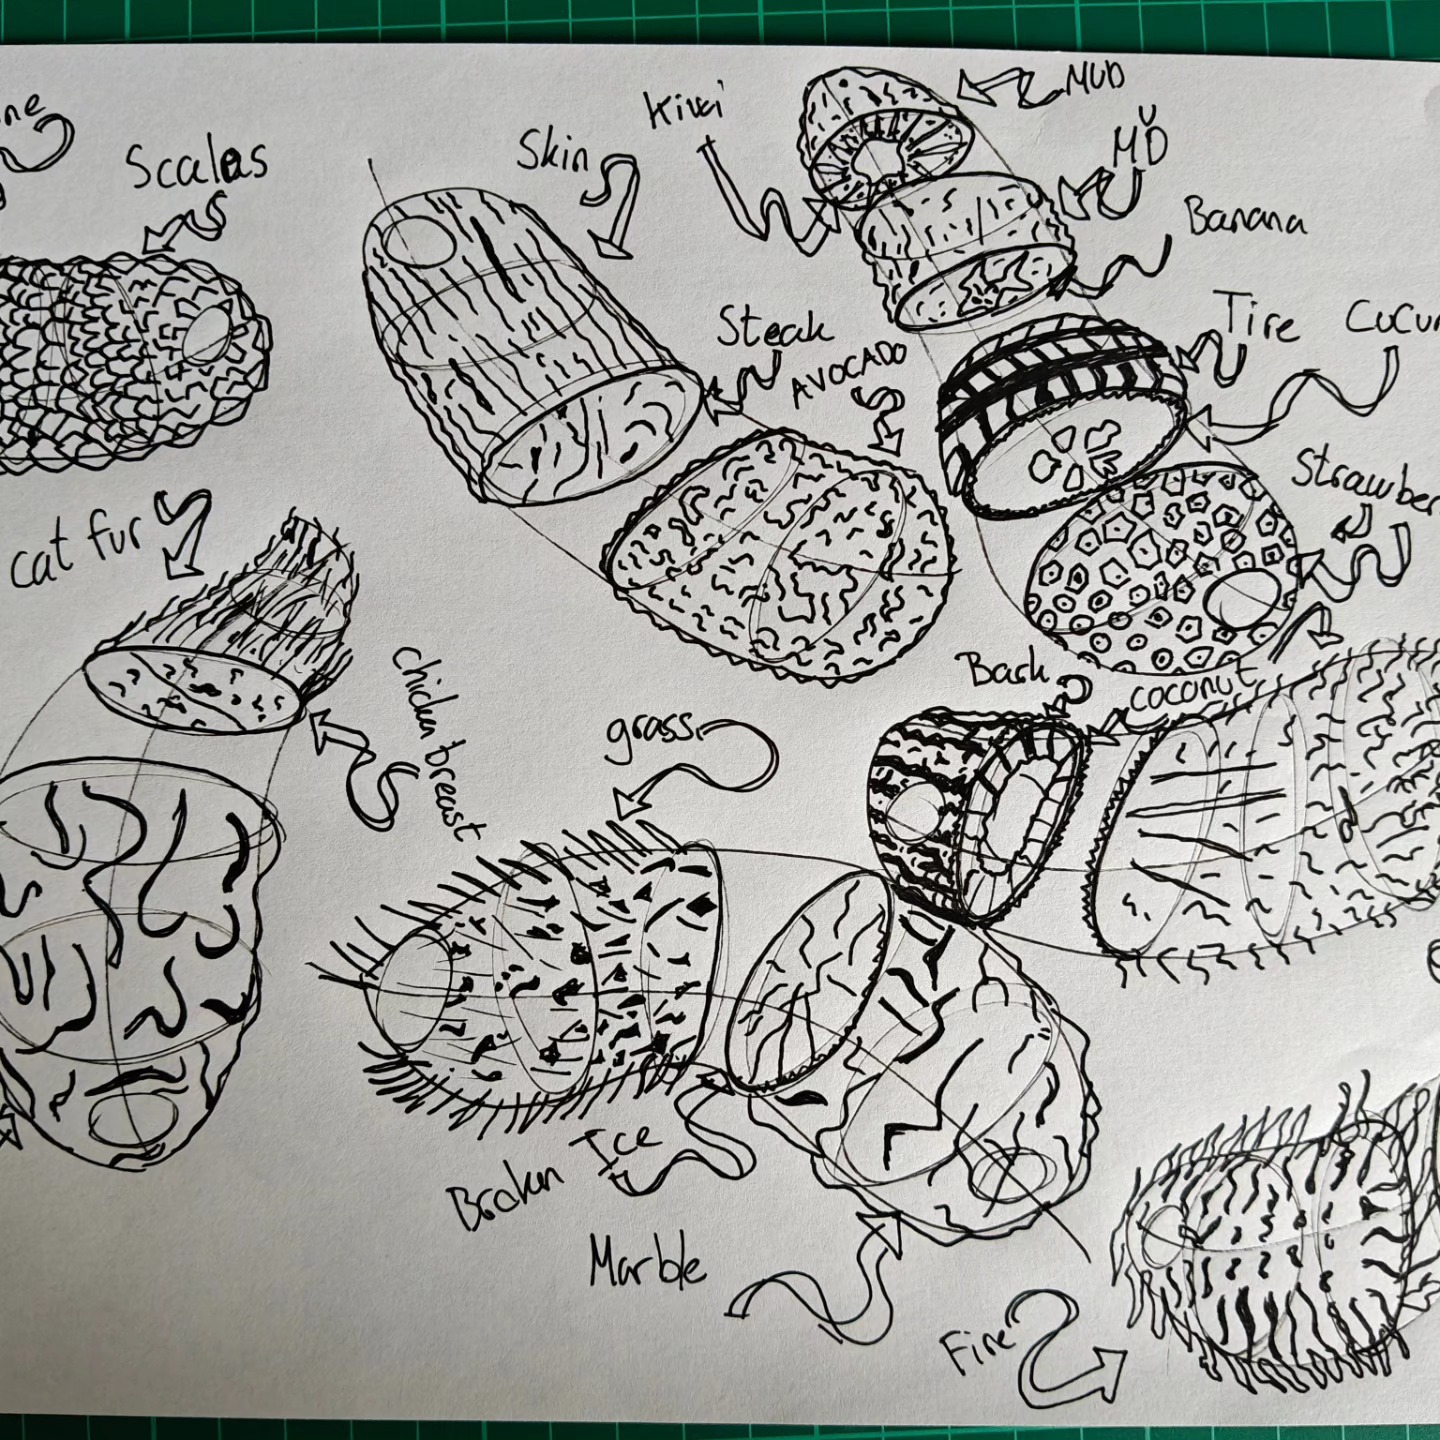 ne
Scales
Skin
Kiwi
MUD
MŬD
Banana
Tire
Cucu
Steak
AVOCADO
Strawber
cat fur
chicken breast
Bark
coconut
grass
Broken Ice
Marble
Fire